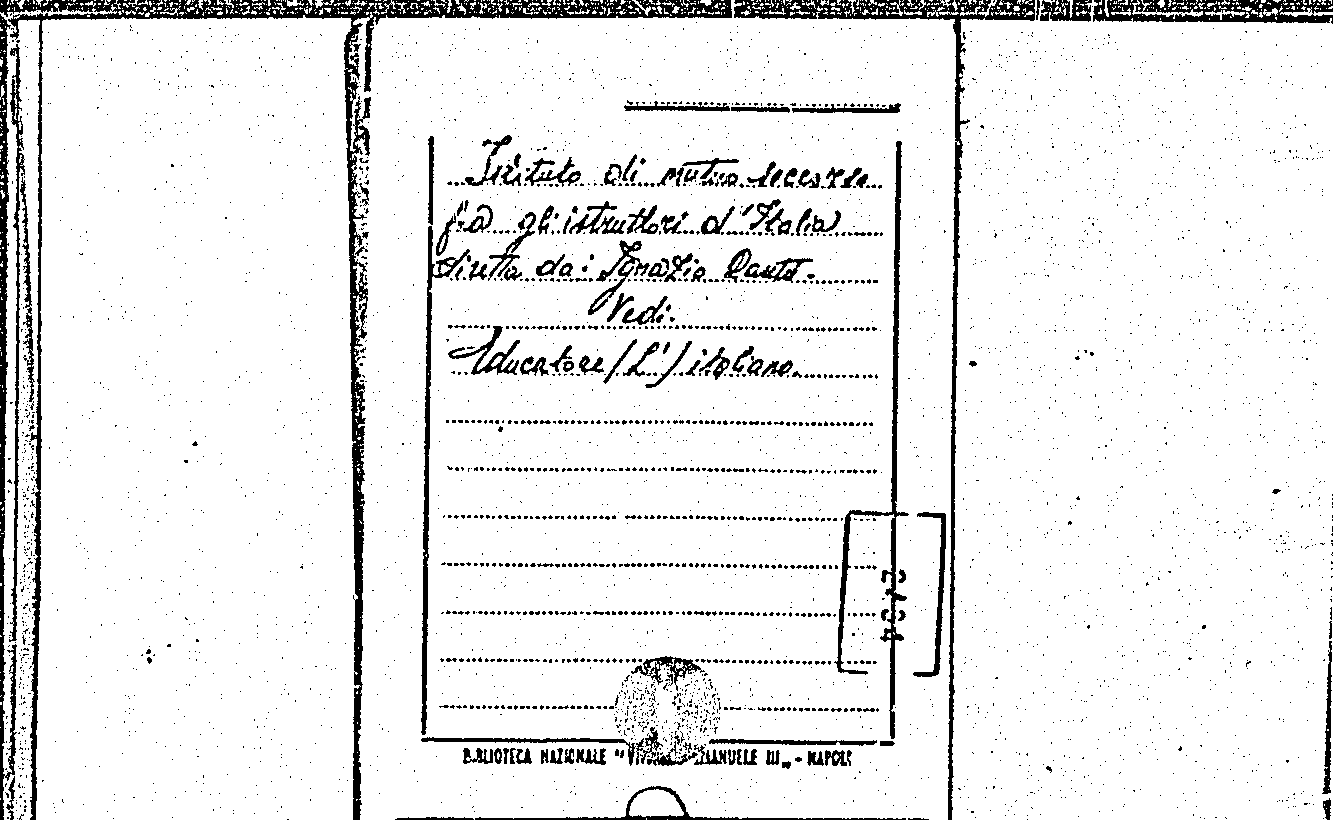 Istituto di mutuo soccorso
fra gli istruttori d'Italia
diretto da: Ignazio Danti.
Vedi.
Educatore (L') italiano.
2434
BIBLIOTECA NAZIONALE "VITTORIO EMANUELE III" - NAPOLI